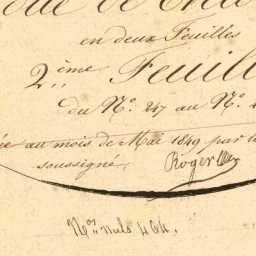 en deux Feuilles
2.ème Feuill
du N.º 247 au N.º
au mois de Mai 1849 par l
soussigné,
Roger
N.os nuls 404.